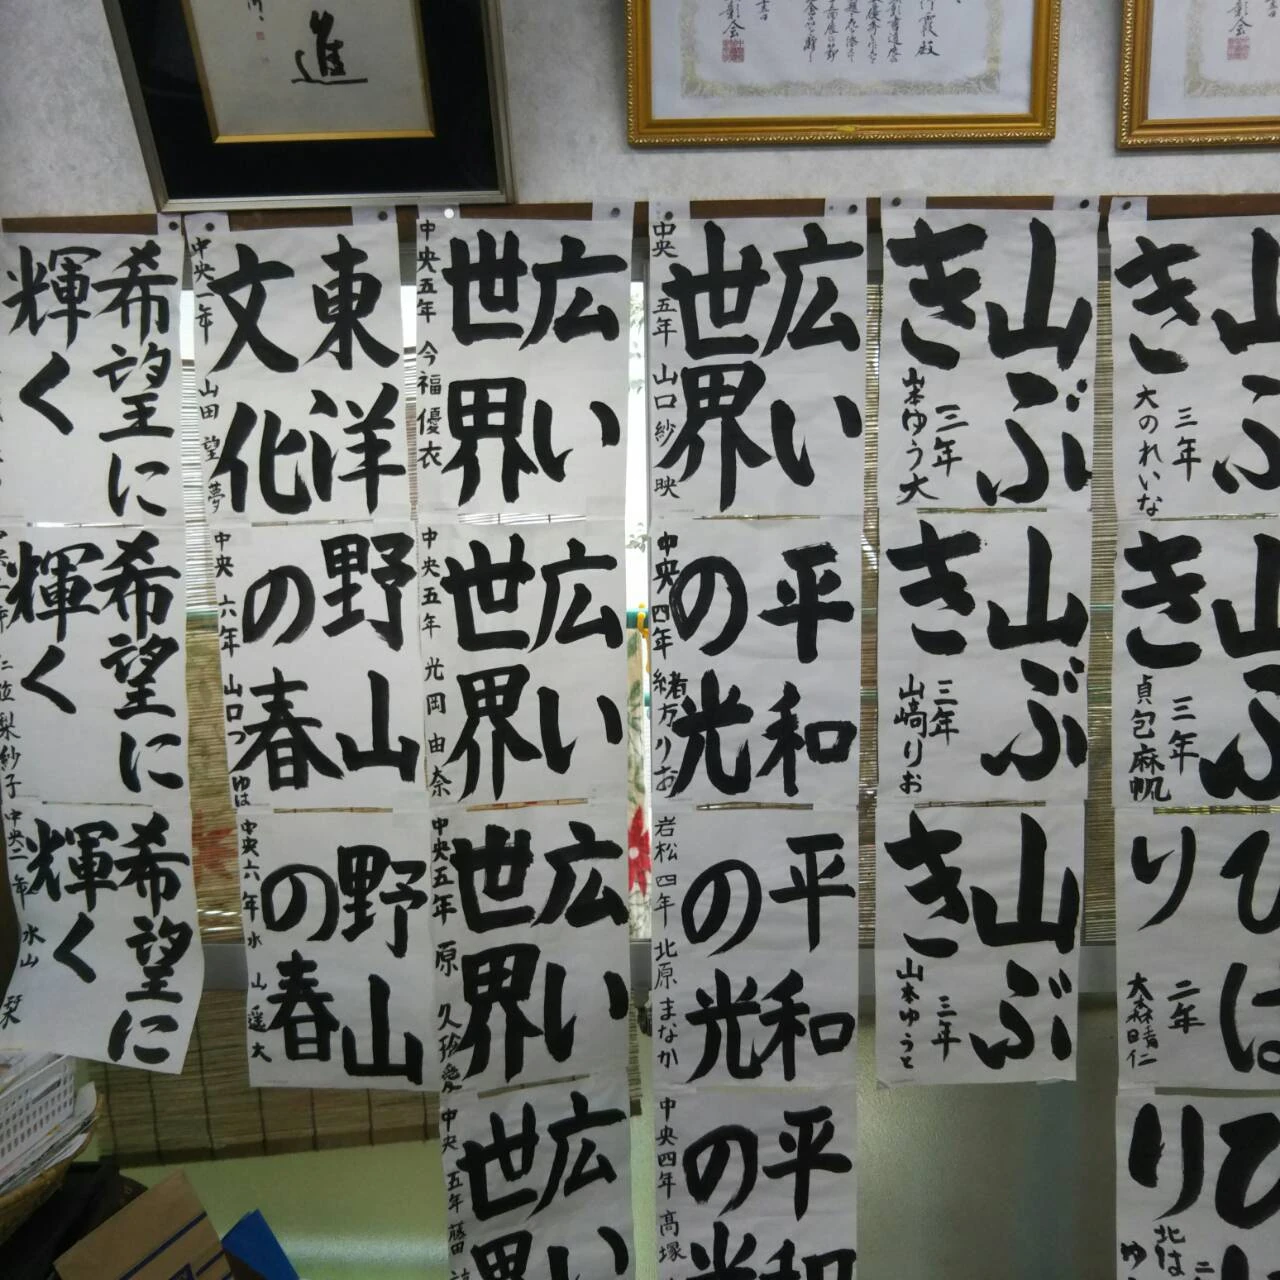 進
希望に
輝く
東洋
文化
中央一年 山田 望夢
広い
世界
中央五年 今福優衣
広い
世界
中央 五年 山口 紗映
山ぶ
き
三年
山本ゆう大
山ぶ
き
三年
大のれいな
希望に
輝く
野山
の春
中央 六年 山口つゆは
広い
世界
中央五年 光岡由奈
平和
の光
中央四年 緒方りお
山ぶ
き
三年
山崎りお
山ぶ
き
三年
貞包麻帆
希望に
輝く
中央二年 水山 栞
野山
の春
中央六年 水山遥大
広い
世界
中央五年 原 久珍愛
平和
の光
岩松四年 北原まなか
山ぶ
き
三年
山本ゆうと
ひば
り
二年
大森晴仁
広い
世界
中央 五年 藤田
平和
の光
中央四年 高塚
ひ
り
北は